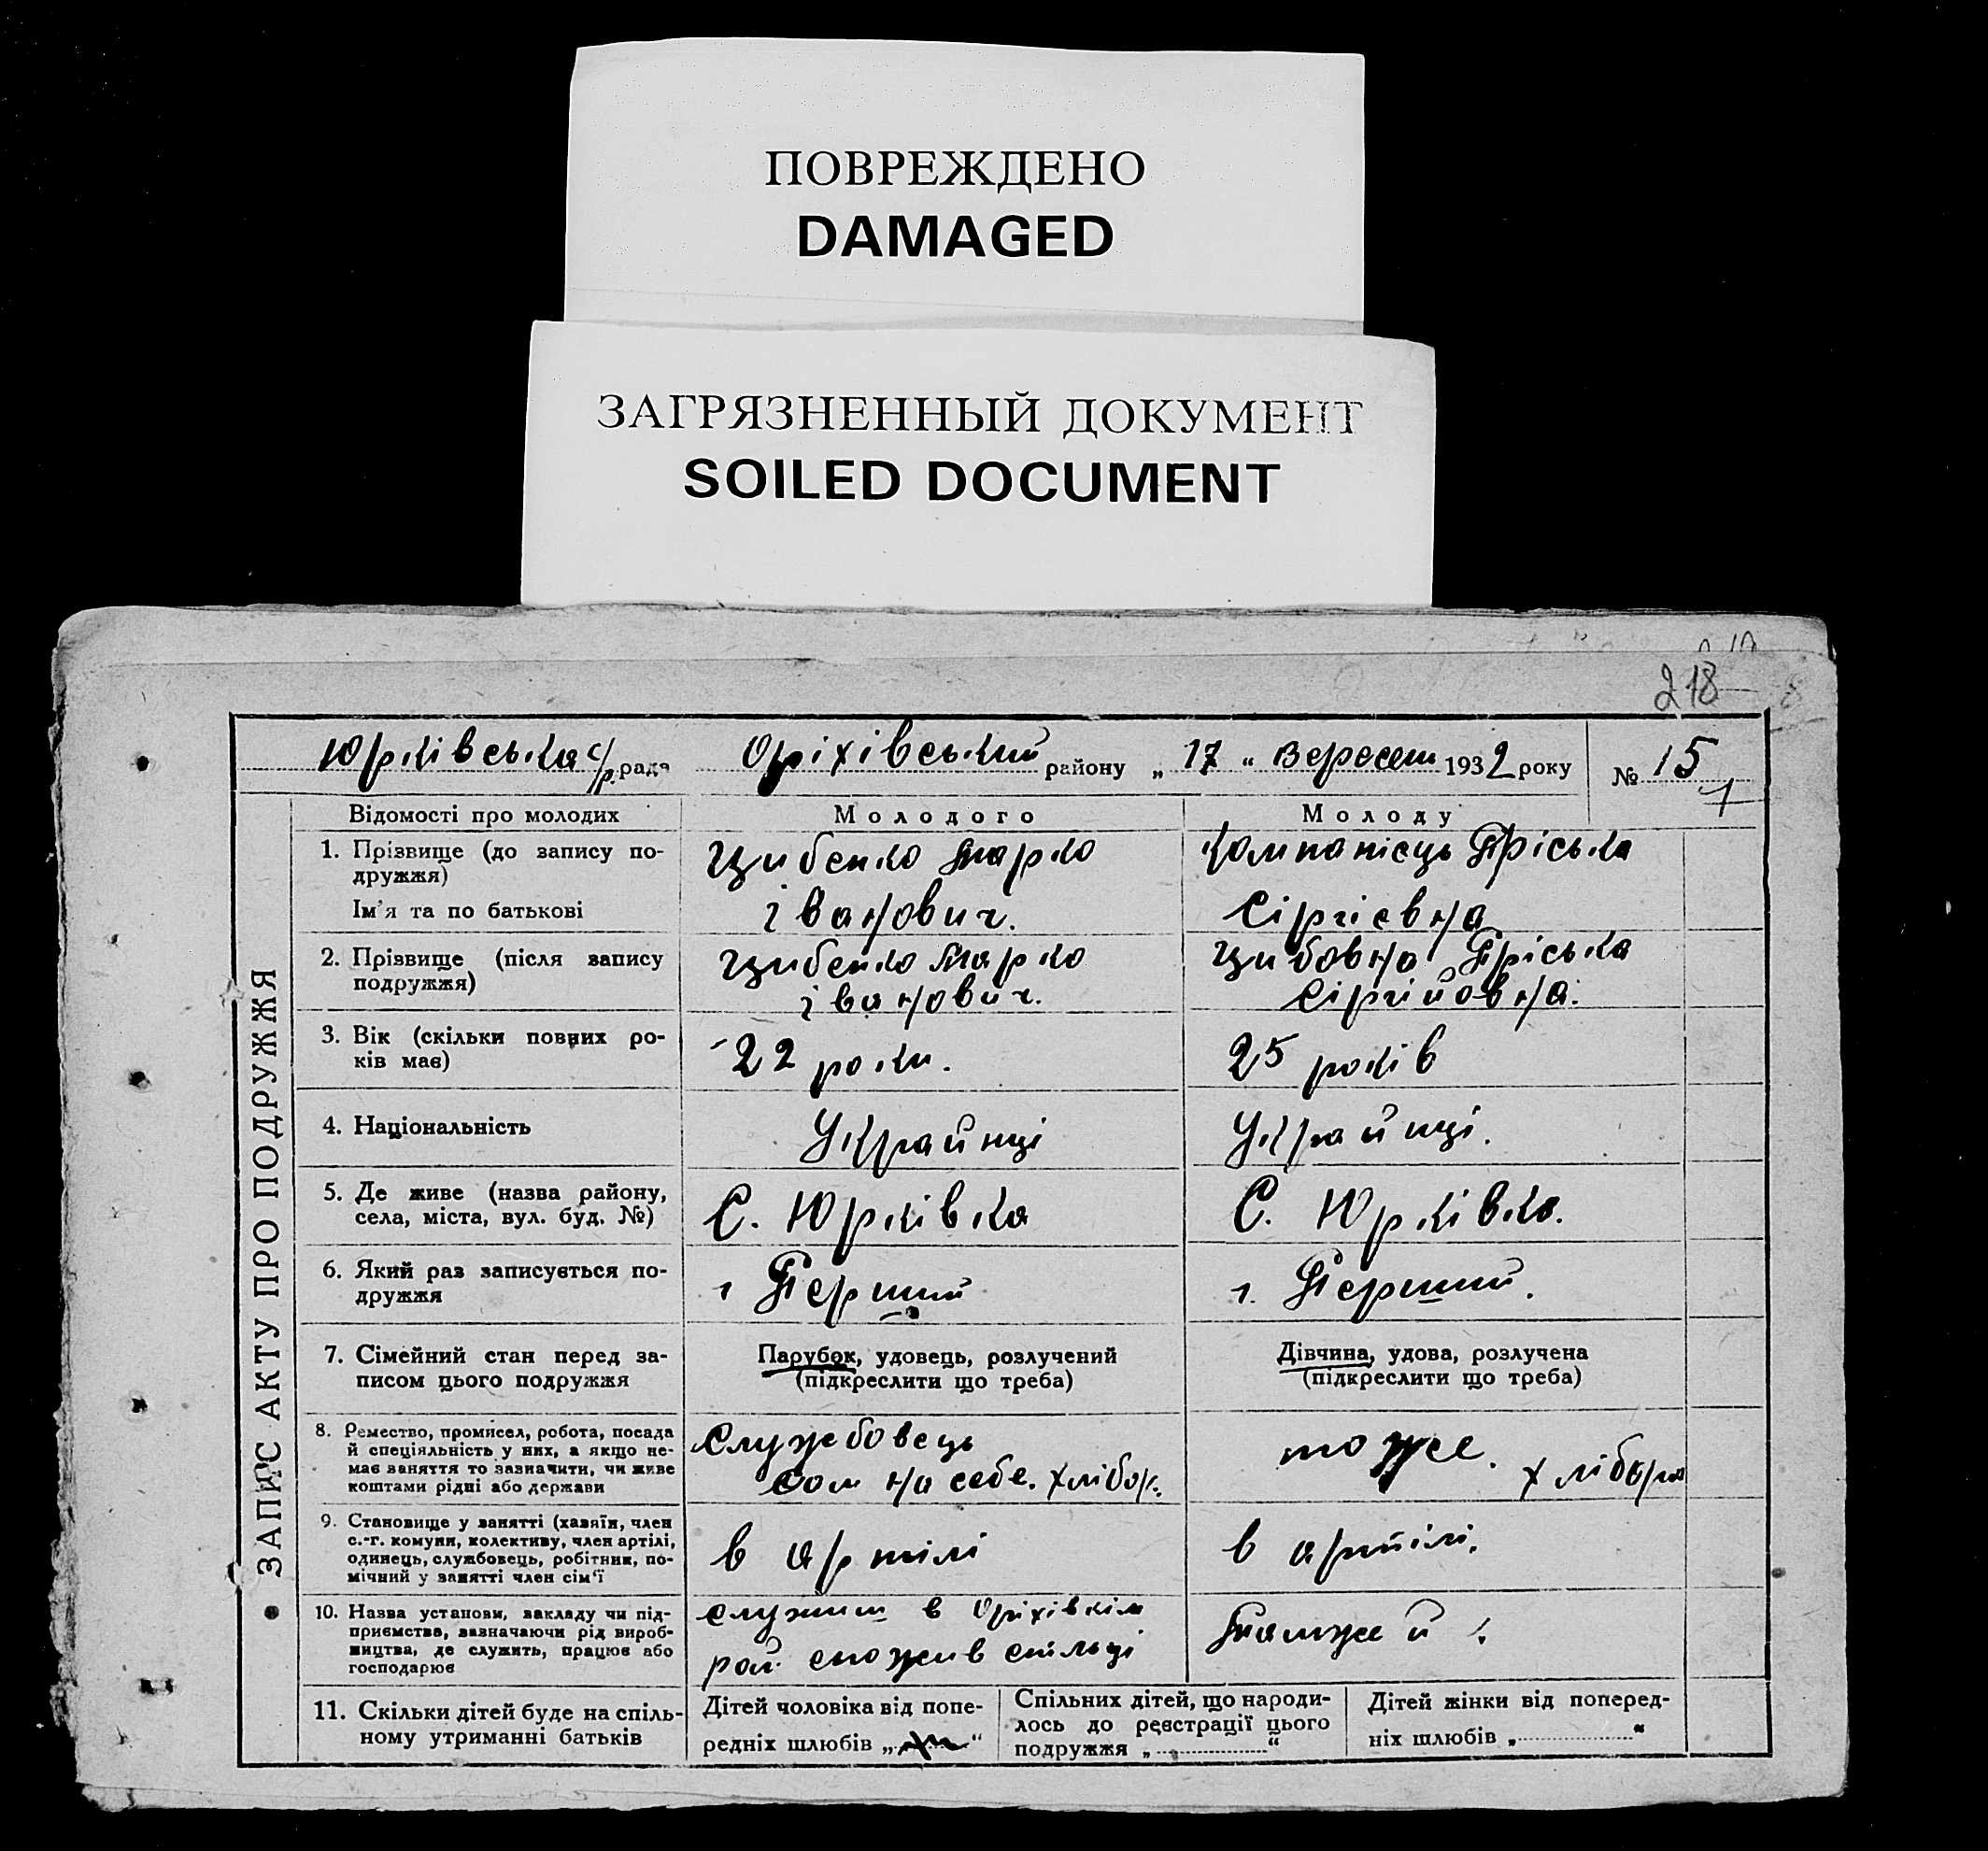 ПОВРЕЖДЕНО
DAMAGED
ЗАГРЯЗНЕННЫЙ ДОКУМЕНТ
SOILED DOCUMENT
218
Юрківська с/р. рада Оріхівський району „ 17 “ Вересня 1932 року № 15
1
ЗАПИС АКТУ ПРО ПОДРУЖЖЯ
Відомості про молодих
Молодого
Молоду
1. Прізвище (до запису по-
дружжя)
Ім'я та по батькові
Цибенко Марко
івановин.
Компанієць Пріська
Сіргієвна
2. Прізвище (після запису
подружжя)
Цибенко Марко
івановин.
Цибовна Пріська
Сіргійовна.
3. Вік (скільки повних ро-
ків має)
22 роки.
25 років
4. Національність
Украйнці
Украйнці.
5. Де живе (назва району,
села, міста, вул. буд. №)
С. Юрківка
С. Юрківка.
6. Який раз записується по-
дружжя
1 Перший
1. Перший.
7. Сімейний стан перед за-
писом цього подружжя
Парубок, удовець, розлучений
(підкреслити що треба)
Дівчина, удова, розлучена
(підкреслити що треба)
8. Ремество, промисел, робота, посада
й спеціяльність у них, а якщо не-
має заняття то зазначити, чи живе
коштами рідні або держави
Службовець
сам на себе. хлібор.
тоже. хлібороб
9. Становище у занятті (хазяїн, член
с.-г. комуни, колективу, член артілі,
одинець, службовець, робітник, по-
мічний у занятті член сім'ї
в артілі
в артілі.
10. Назва установи, закладу чи під-
приємства, зазначаючи рід вироб-
ництва, де служить, працює або
господарює
служит в Оріхівкім
рай. спожив спільці
Также й
11. Скільки дітей буде на спіль-
ному утриманні батьків
Дітей чоловіка від попе-
редніх шлюбів „ “
Спільних дітей, що народи-
лось до реєстрації цього
подружжя „ “
Дітей жінки від поперед-
ніх шлюбів „ “